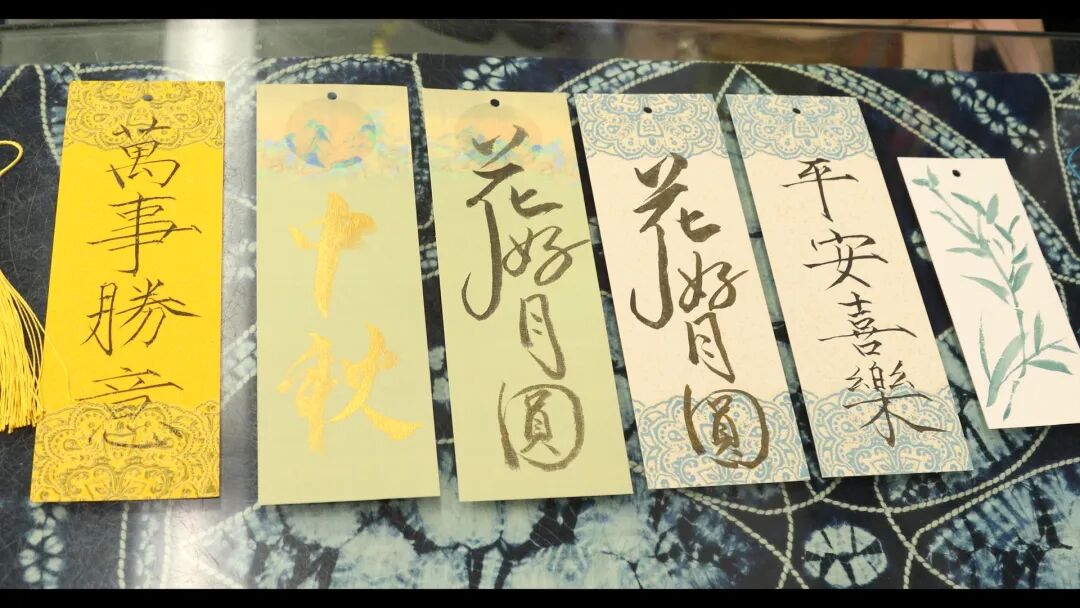 萬事勝意
中秋
花好月圓
花好月圓
平安喜樂